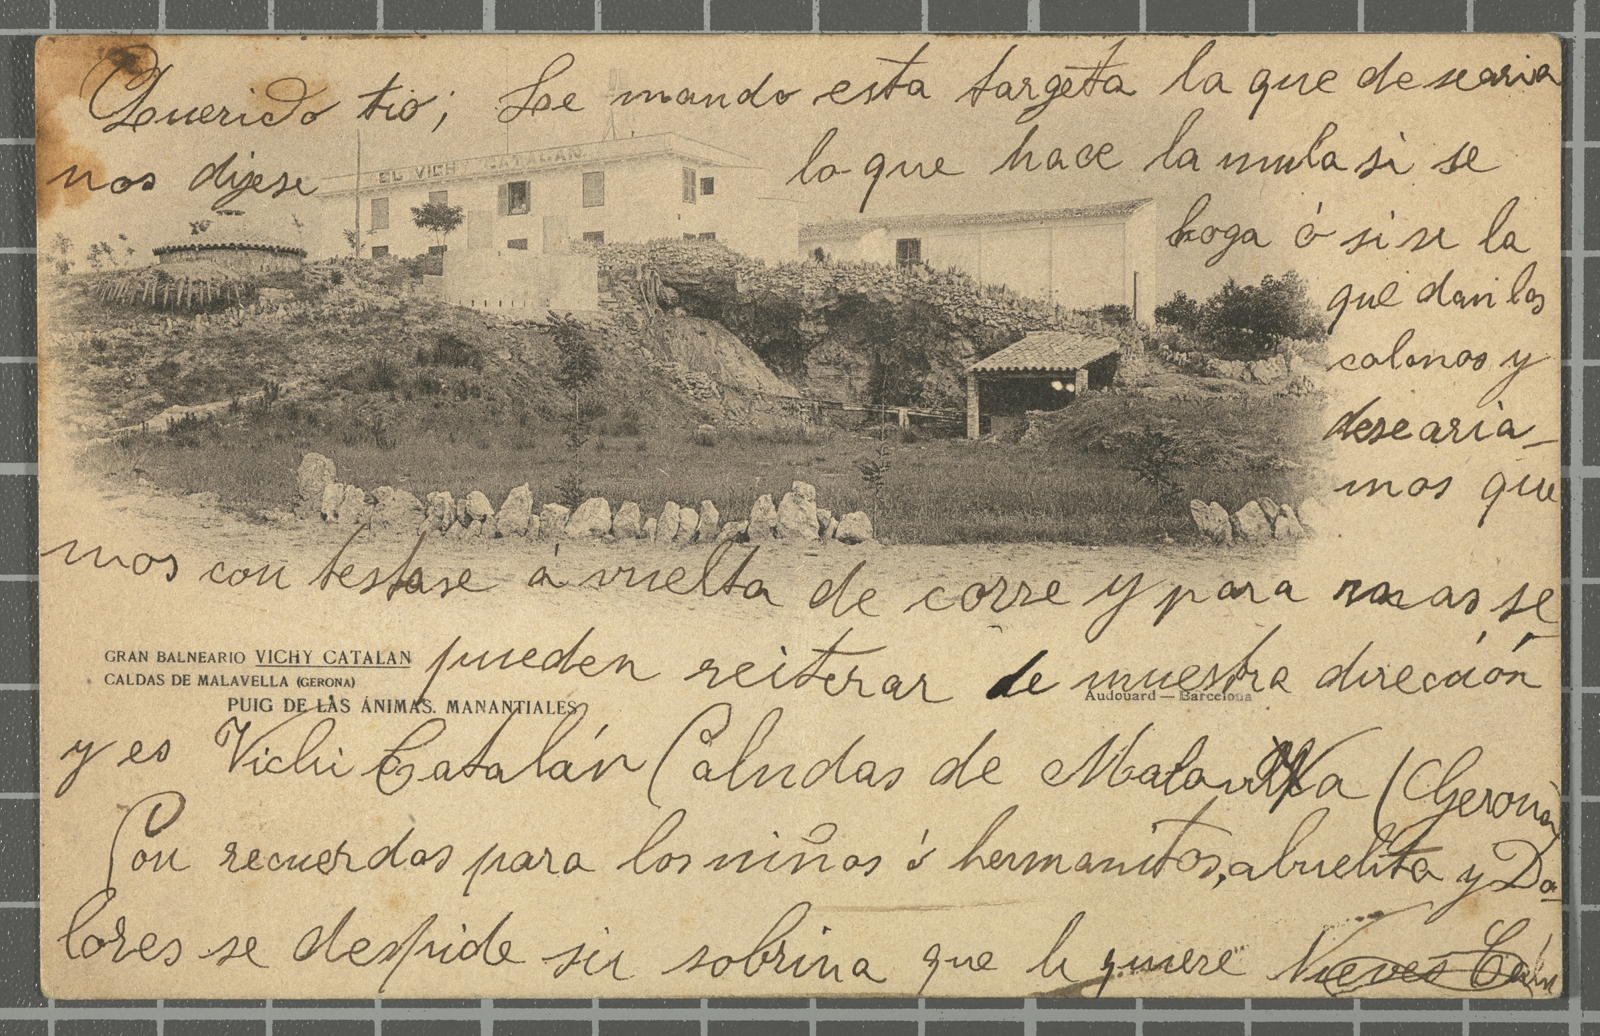 Querido tio; Le mando esta targeta la que desearia
nos dijese lo que hace la mula si se
hoga ó si se la
que dan los
colonos y
desearia-
mos que
nos contestase á vuelta de corre y para mas se
pueden reiterar de nuestra dirección
y es Vichi Catalán Caludas de Malavella (Gerona)
Con recuerdos para los niños ó hermanitos, abuelita y Do-
lores se despide su sobrina que le quiere Nieves
EL VICHY CATALAN
GRAN BALNEARIO VICHY CATALAN
CALDAS DE MALAVELLA (GERONA)
PUIG DE LAS ÁNIMAS. MANANTIALES
Audouard — Barcelona